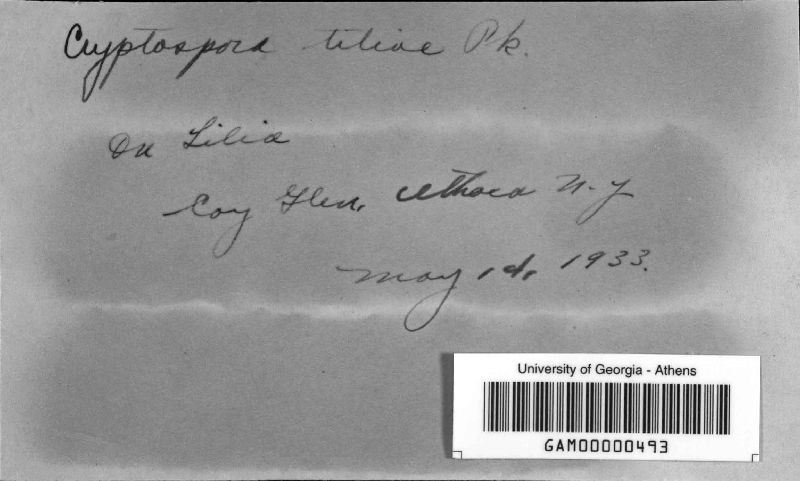 Cryptospora tiliae Pk.
On Tilia
Coy Glen, Ithaca N.Y
May 14, 1933.
University of Georgia - Athens
GAM00000493